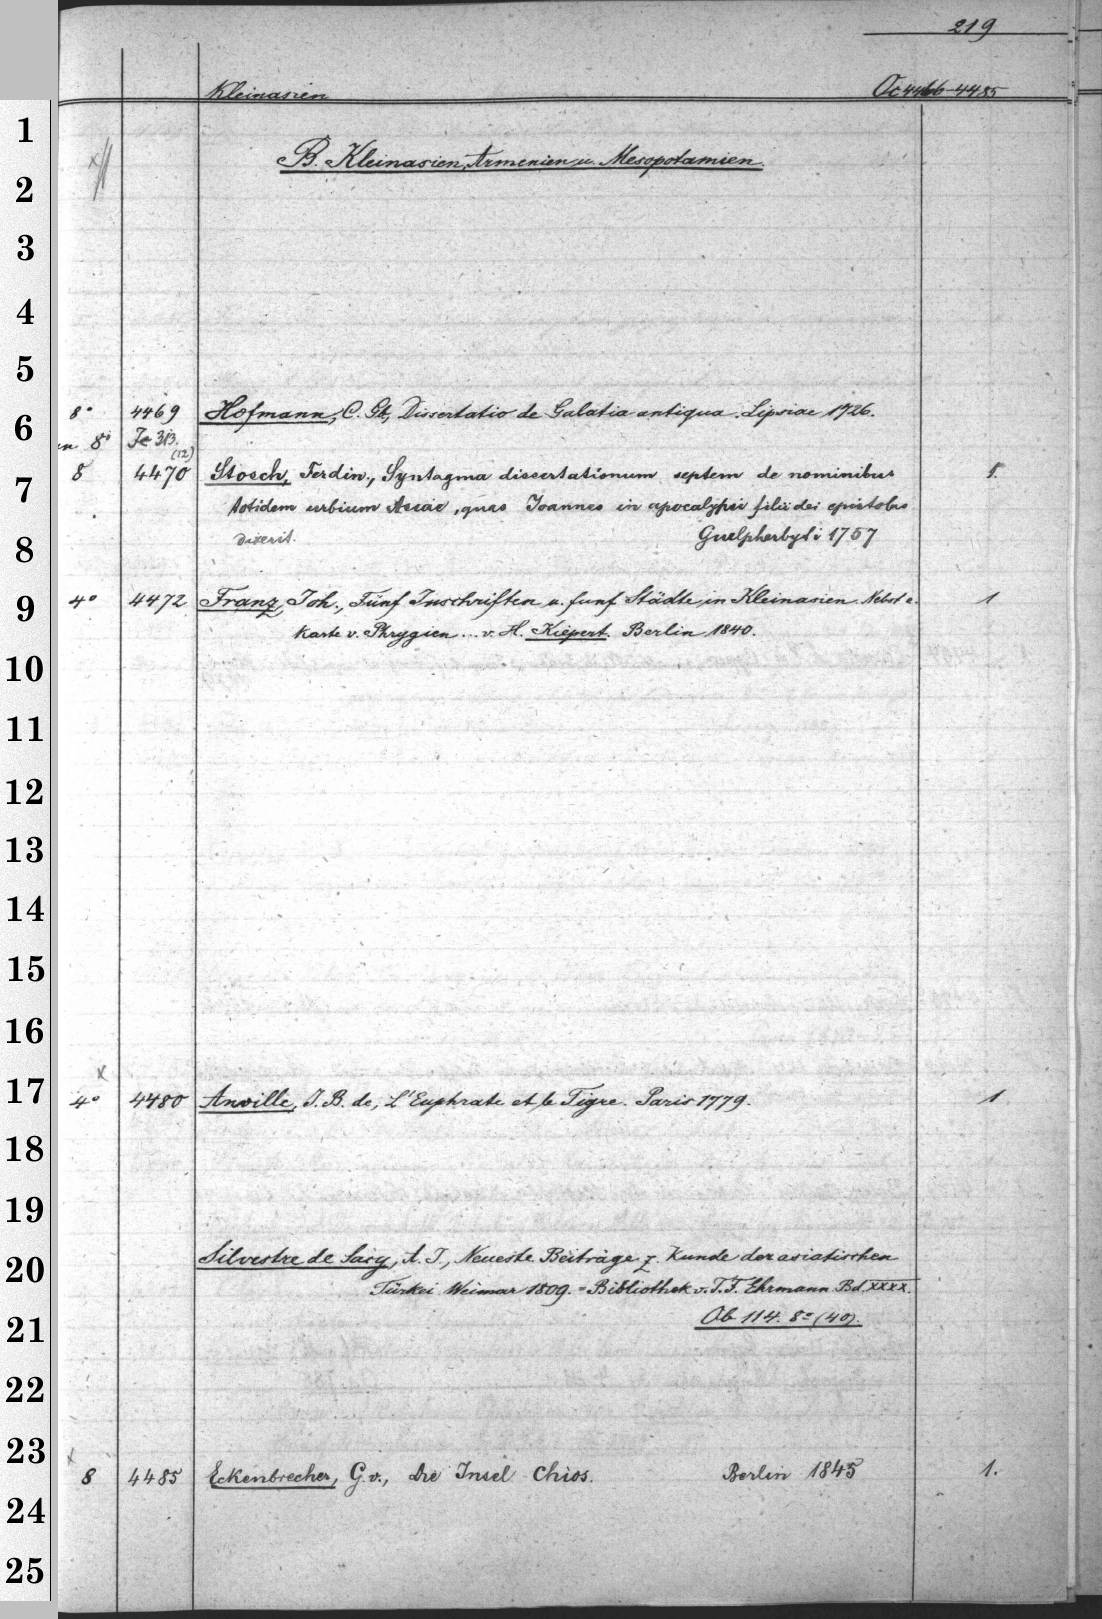 219
Kleinasien Oc 4466-4485
B. Kleinasien, Armenien u. Mesopotamien.
8° 4469 Hofmann, C. Gt, Dissertatio de Galatia antiqua. Lipsiae 1726.
an 8° Je 313.
(12)
8 4470 Stosch, Ferdin., Syntagma dissertationum septem de nominibus 1.
totidem urbium Asiae, quas Joannes in apocalypsi filii dei epistolas
dixerit. Guelpherbyti 1757
4° 4472 Franz, Joh., Fünf Inschriften u. fünf Städte in Kleinasien. Nebst e. 1
Karte v. Phrygien... v. H. Kiepert. Berlin 1840.
x
4° 4480 Anville, J. B. de, L'Euphrate et le Tigre. Paris 1779. 1
Silvestre de Sacy, A. J., Neueste Beiträge z. Kunde der asiatischen
Türkei Weimar 1809. = Bibliothek v. T. F. Ehrmann Bd. XXXX.
Ob 114. 8° (40).
x
8 4485 Eckenbrecher, G. v., die Insel Chios. Berlin 1845 1.
1
2
3
4
5
6
7
8
9
10
11
12
13
14
15
16
17
18
19
20
21
22
23
24
25